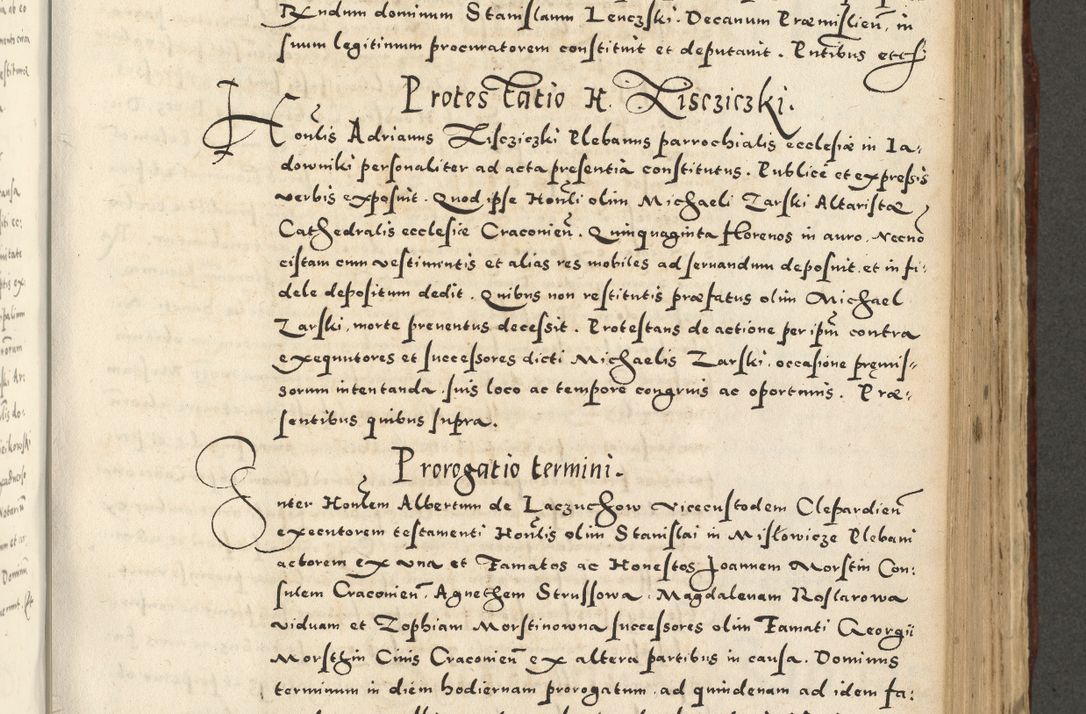 Rndum dominum Stanislaum Lenczski. Decanum Præmislien̄, in
suum legitimum procuratorem constituit et deputauit. Pn̄tibus etc̄
Protestatio H. Lisczieczki.
Hon̄lis Adrianus Lisczieczki Plebanus parrochialis ecclesiæ in Ia,
downiki personaliter ad acta presentia constitutus. Publicè et expressis
verbis exposuit. Quod ipse Hon̄li olim Michaeli Zarski Altaristæ
Cathedralis ecclesiæ Craconien̄. Quinquaginta florenos in auro, Necnō
cistam cum vestimentis et alias res mobiles ad seruandum deposuit. et in fi,
dele depositum dedit. Quibus non restitutis præfatus olim Michael
Zarski, morte preuentus decessit. Protestans de actione per ipm̄ contra
exequutores et successores dicti Michaelis Zarski, occasione pręmis,
sorum intentanda, suis loco ac tempore congruis ac oportunis. Præ,
sentibus quibus supra.
Prorogatio termini.
Inter Hon̄lem Albertum de Laczuchow vicecustodem Clepardien̄
executorem testamenti Hon̄lis olim Stanislai in Misłowicze Plebani
actorem ex vna et Famatos ac Honestos Joannem Morstin Con:
sulem Craconien̄. Agnethem Strussowa. Magdalenam Roslarowa
viduam et Zophiam Morstinowna successores olim Famati Georgii
Morsthin Ciuis Craconien̄ ex altera partibus in causa. Dominus
terminum in diem hodiernam prorogatum, ad quindenam ad idem fa: